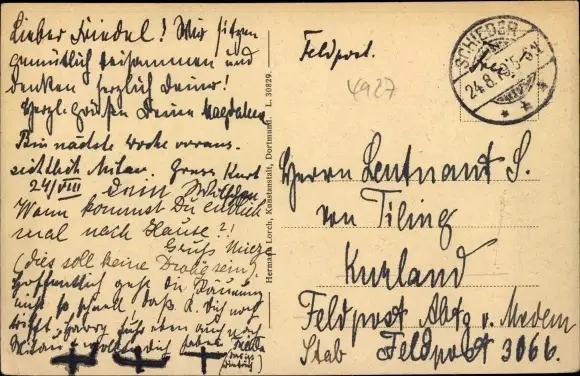 Lieber Friedel! Wir sitzen
gemütlich beisammen und
denken herzlich Deiner!
Herzl. Grüßen Deine Magdalena
Bin nächste Woche voraus-
sichtlich Mitau. Gruss Kurt
24/VIII Dein
Wann kommst Du endlich
mal nach Hause?!
Gruß
(dies soll keine Drohg sein).
Hoffentlich geht die Räumung
nicht so schnell daß Dich noch
auch noch
Mitau
Hermann Lorch, Kunstanstalt, Dortmund. L. 30829.
Feldpost.
4927
SCHIEDER
24.8.
Herrn Leutnant S.
von Tiling
Kurland
Feldpost Abtg v. Medem
Stab Feldpost 3066.